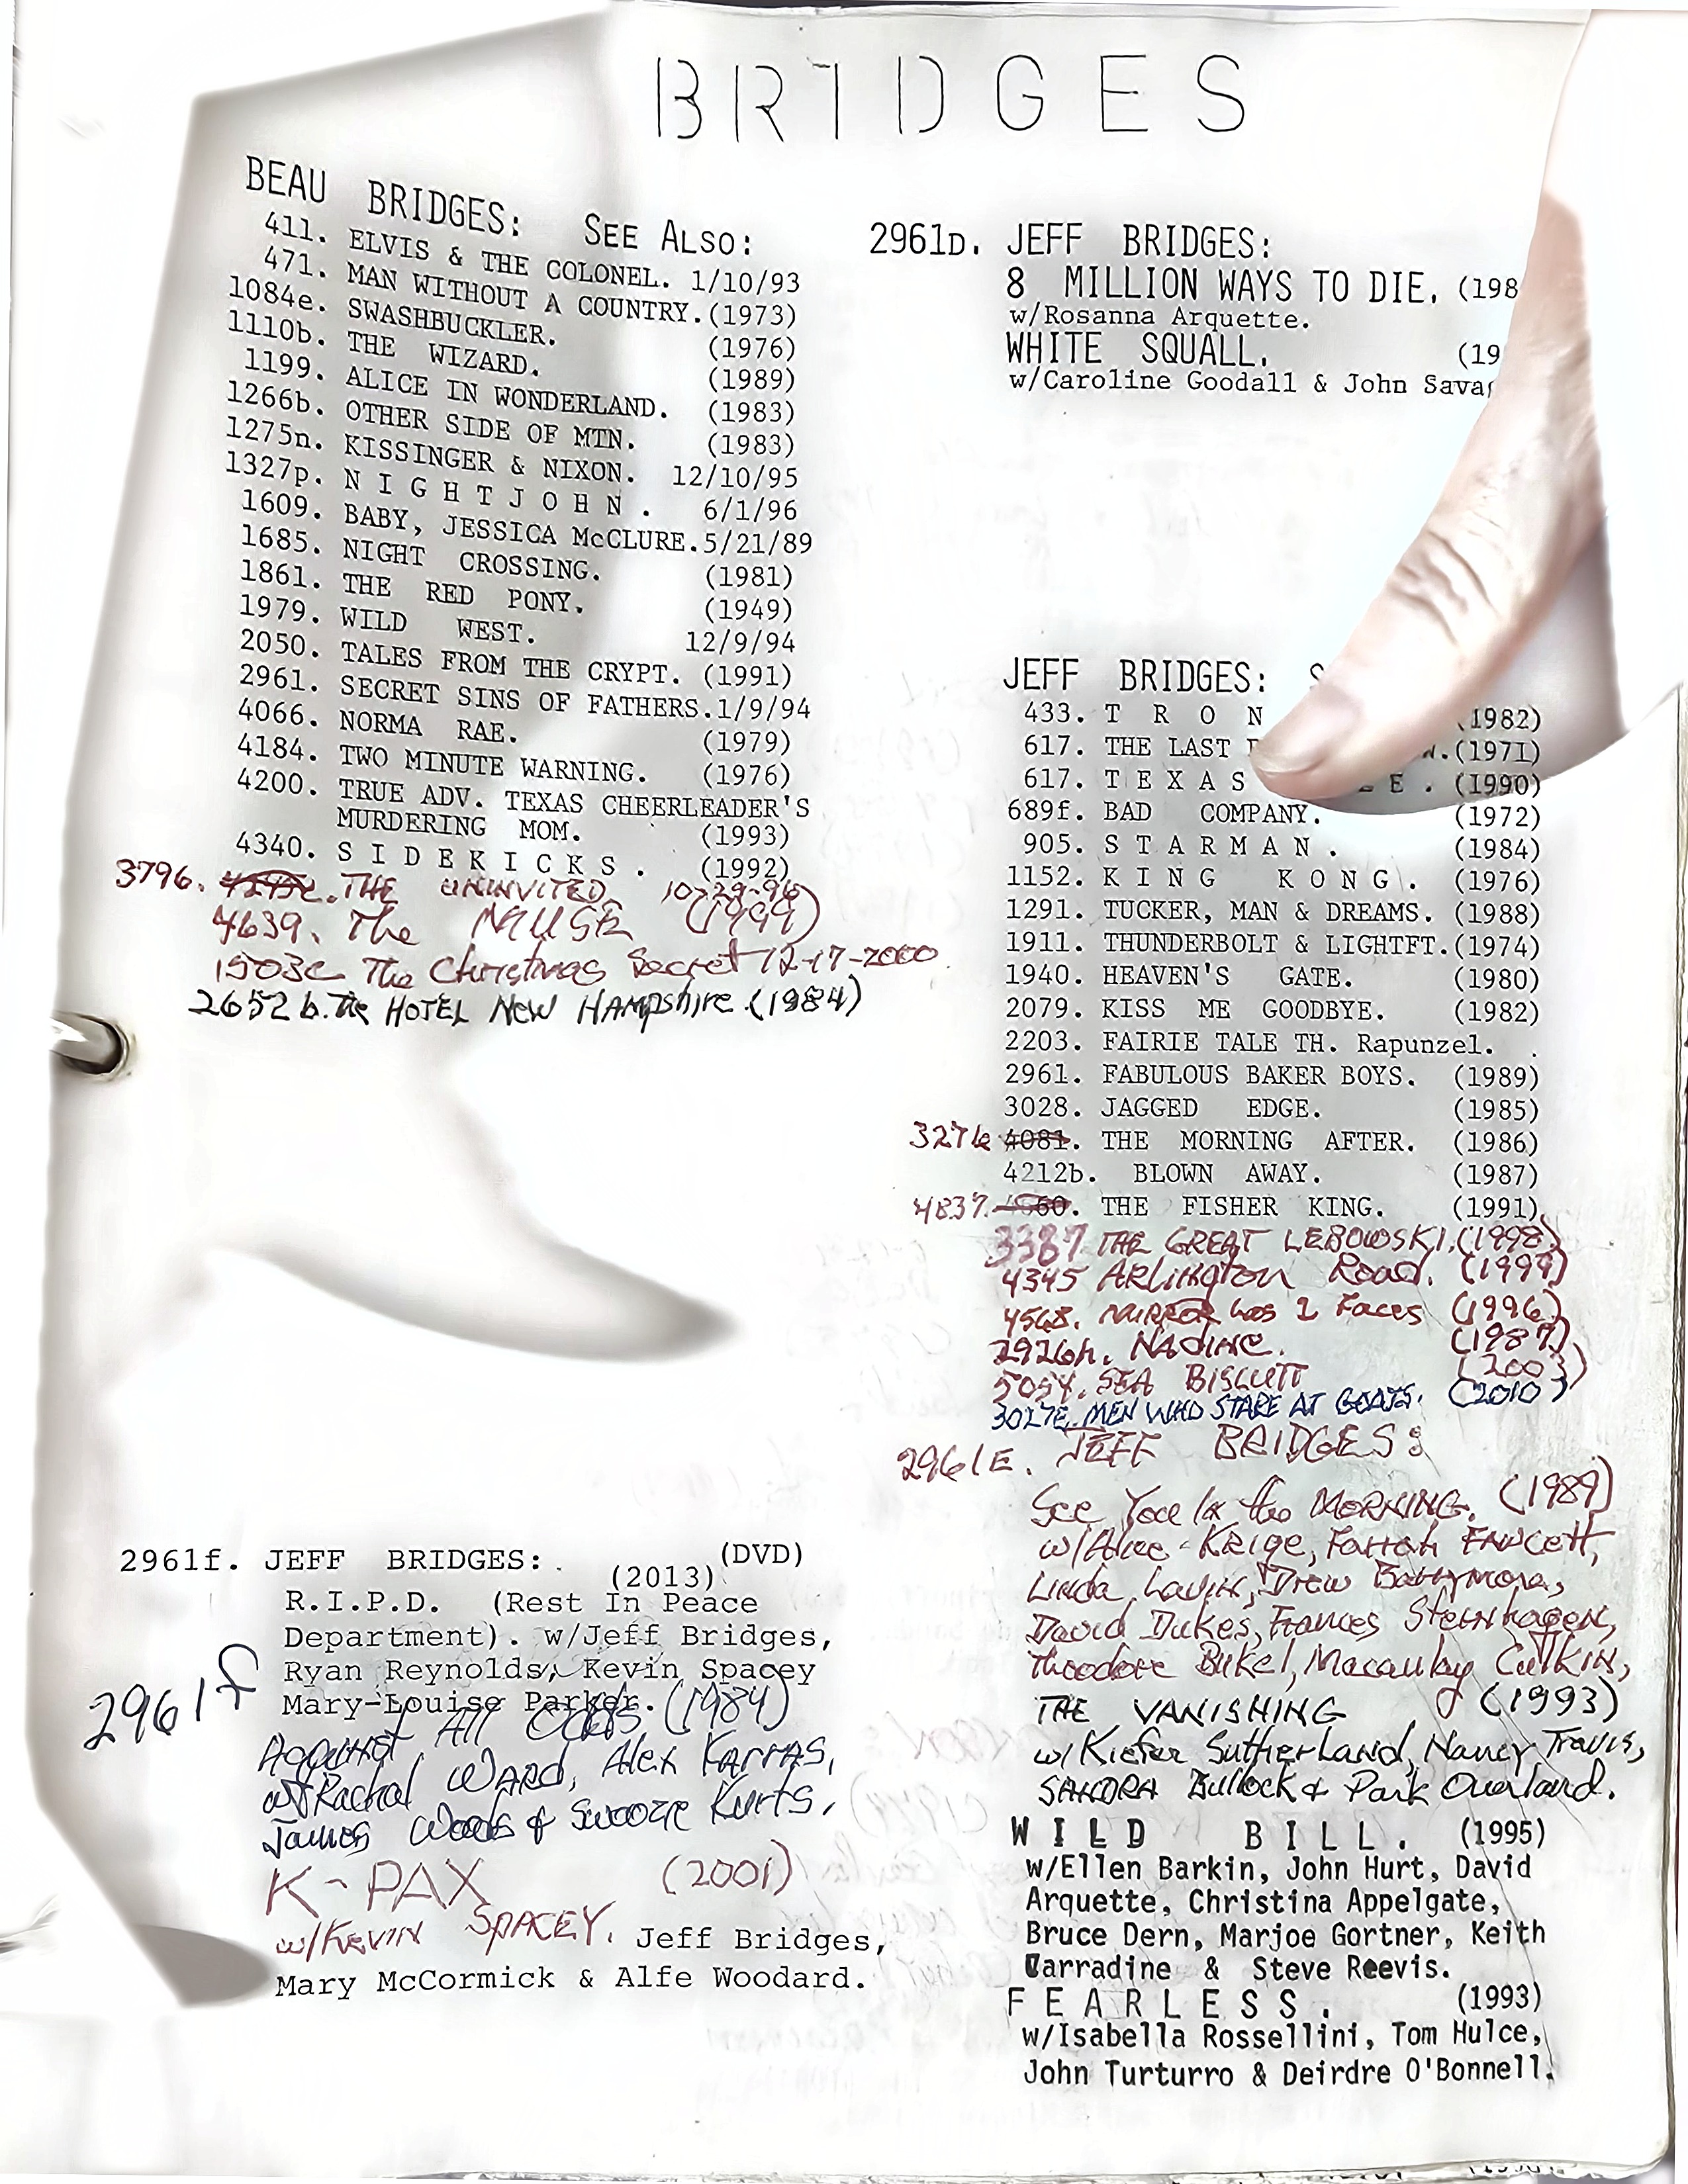 BRIDGES
BEAU BRIDGES: SEE ALSO:
411. ELVIS & THE COLONEL. 1/10/93
471. MAN WITHOUT A COUNTRY. (1973)
1084e. SWASHBUCKLER. (1976)
1110b. THE WIZARD. (1989)
1199. ALICE IN WONDERLAND. (1983)
1266b. OTHER SIDE OF MTN. (1983)
1275n. KISSINGER & NIXON. 12/10/95
1327p. N I G H T J O H N . 6/1/96
1609. BABY, JESSICA McCLURE. 5/21/89
1685. NIGHT CROSSING. (1981)
1861. THE RED PONY. (1949)
1979. WILD WEST. 12/9/94
2050. TALES FROM THE CRYPT. (1991)
2961. SECRET SINS OF FATHERS. 1/9/94
4066. NORMA RAE. (1979)
4184. TWO MINUTE WARNING. (1976)
4200. TRUE ADV. TEXAS CHEERLEADER'S
MURDERING MOM. (1993)
4340. S I D E K I C K S . (1992)
3796. THE UNINVITED. 10-29-96
4639. The MUSE (1999)
1503c The Christmas Secret 12-17-2000
2652b. The HOTEL NEW HAMPshire. (1984)
2961f. JEFF BRIDGES: (DVD)
(2013)
R.I.P.D. (Rest In Peace
Department). w/Jeff Bridges,
Ryan Reynolds, Kevin Spacey
Mary-Louise Parker.
2961f Against All Odds. (1984)
w/Rachal WARD, Alex KARRAS,
James Woods & Swoozie Kurts.
K-PAX (2001)
w/KEVIN SPACEY. Jeff Bridges,
Mary McCormick & Alfe Woodard.
2961D. JEFF BRIDGES:
8 MILLION WAYS TO DIE. (198
w/Rosanna Arquette.
WHITE SQUALL. (19
w/Caroline Goodall & John Sava
JEFF BRIDGES: S
433. T R O N (1982)
617. THE LAST (1971)
617. T E X A S L E . (1990)
689f. BAD COMPANY. (1972)
905. S T A R M A N . (1984)
1152. K I N G K O N G . (1976)
1291. TUCKER, MAN & DREAMS. (1988)
1911. THUNDERBOLT & LIGHTFT. (1974)
1940. HEAVEN'S GATE. (1980)
2079. KISS ME GOODBYE. (1982)
2203. FAIRIE TALE TH. Rapunzel.
2961. FABULOUS BAKER BOYS. (1989)
3028. JAGGED EDGE. (1985)
4081. THE MORNING AFTER. (1986)
4212b. BLOWN AWAY. (1987)
4837. THE FISHER KING. (1991)
3387 THE GREAT LEBOWSKI. (1998)
4345 ARLINgTon Road. (1999)
4568. MIRROR has 2 Faces (1996)
2926h. NAdINE. (1987)
5054. SEA BISCUIT (2003)
3027E. MEN WHO STARE AT GOATS. (2010)
2961E. JEFF BRIDGES:
See You In the MORNING. (1989)
w/Alice Krige, Farrah FAWCett,
Linda Lavin, Drew Barrymore,
David Dukes, Frances Sternhagen,
Theodore Bikel, Macaulay CulKIN,
THE VANISHING (1993)
w/Kiefer Sutherland, Nancy Travis,
SANDRA Bullock & Park Overland.
W I L D B I L L . (1995)
w/Ellen Barkin, John Hurt, David
Arquette, Christina Appelgate,
Bruce Dern, Marjoe Gortner, Keith
Carradine & Steve Reevis.
F E A R L E S S . (1993)
w/Isabella Rossellini, Tom Hulce,
John Turturro & Deirdre O'Bonnell.